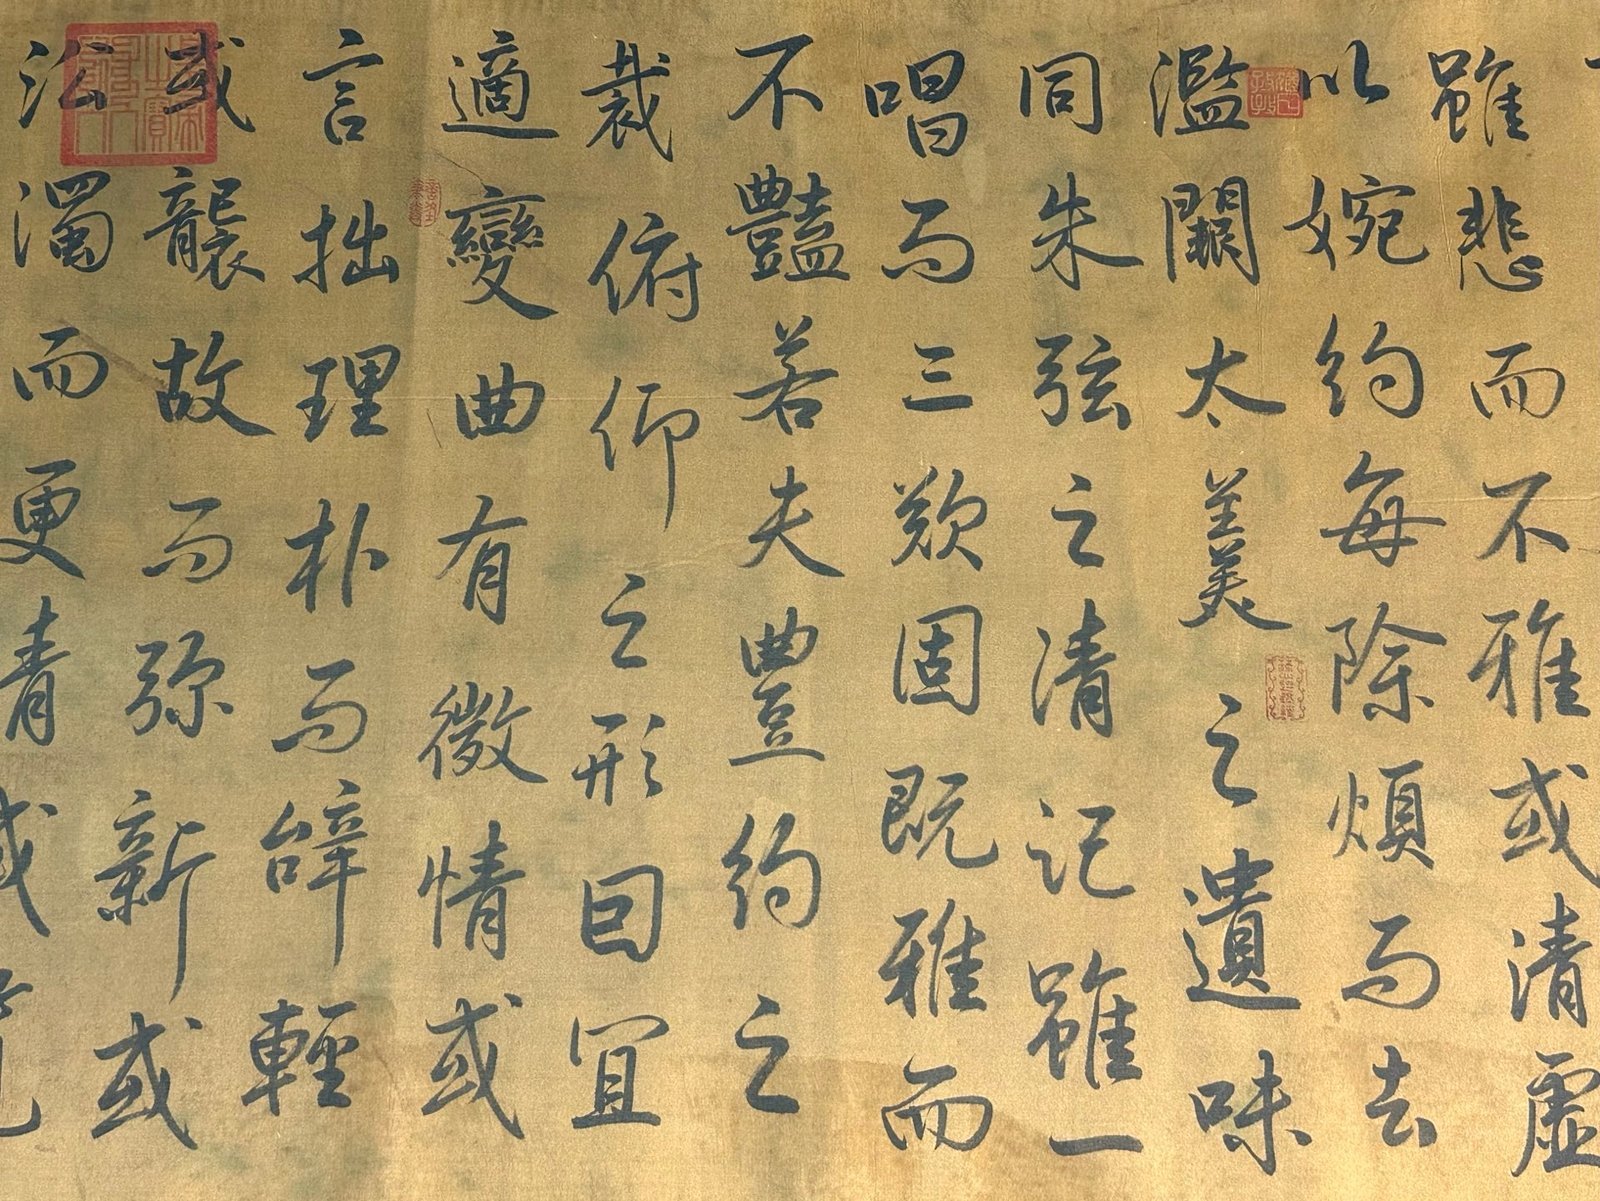 雖悲而不雅或清虛
以婉約每除煩而去
濫闕太羹之遺味
同朱弦之清汜雖一
唱而三歎固既雅而
不豔若夫豐約之
裁俯仰之形因宜
適變曲有微情或
言拙理朴而辞輕
或襲故而弥新或
沿濁而更清或